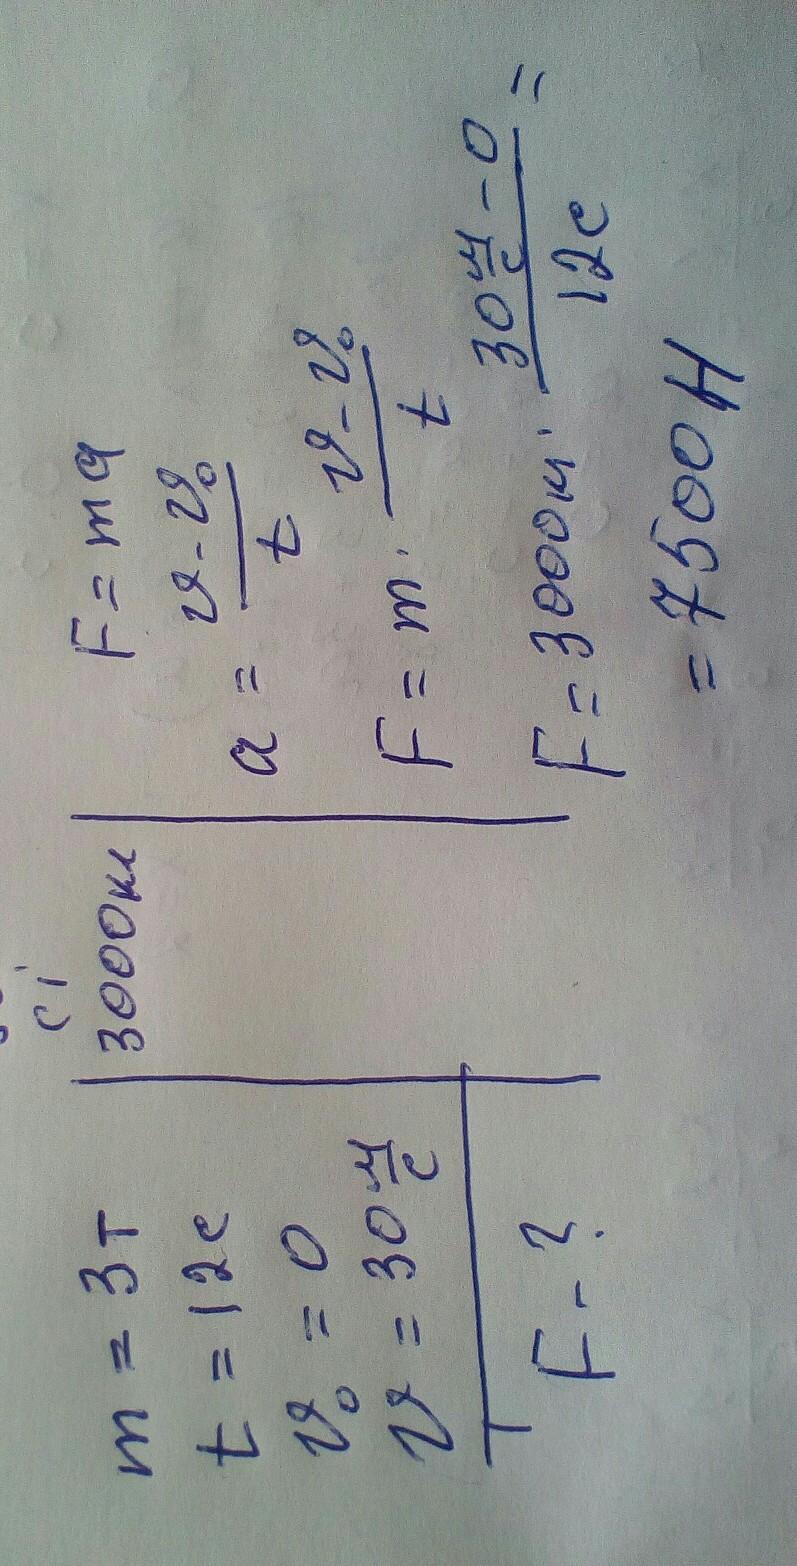 m = 3т
t = 12с
υ₀ = 0
υ = 30 м/с
F - ?
СІ
3000кг
F = ma
a = (υ - υ₀)/t
F = m · (υ - υ₀)/t
F = 3000кг · (30 м/с - 0)/12с =
= 7500Н